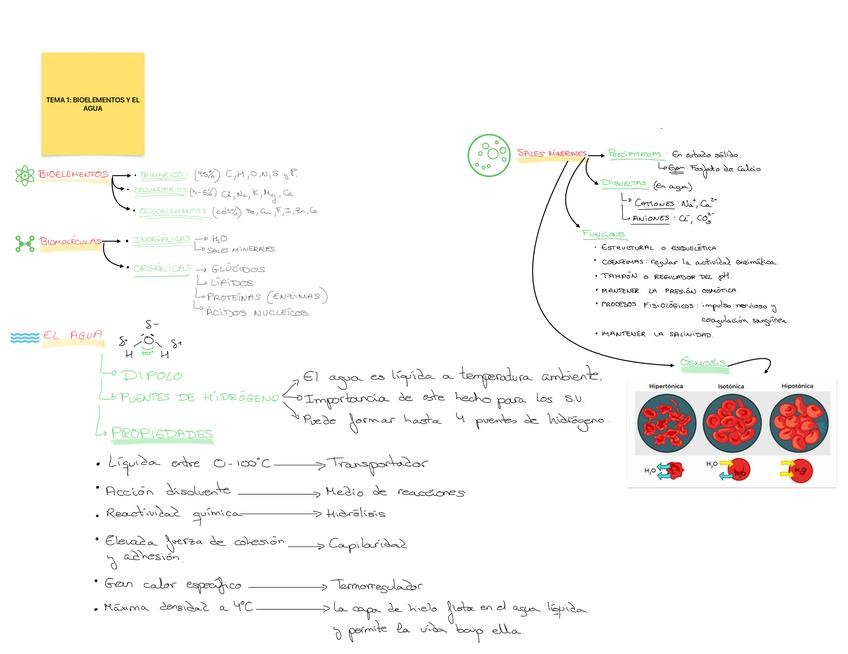 TEMA 1: BIOELEMENTOS Y EL
AGUA
BIOELEMENTOS
PRIMARIOS: (95%) C, H, O, N, S y P.
SECUNDARIOS (4-5%) Cl, Na, K, Mg, Ca
OLIGOELEMENTOS Fe, Cu, F, I, Zn, Co
BIOMOLÉCULAS
INORGÁNICAS → H₂O
SALES MINERALES
ORGÁNICAS → GLÚCIDOS
LÍPIDOS
PROTEÍNAS (ENZIMAS)
ÁCIDOS NUCLEÍCOS
EL AGUA
δ-
δ+ O δ+
H H
DIPOLO
PUENTES DE HIDRÓGENO
El agua es líquida a temperatura ambiente.
Importancia de este hecho para los s.v.
Puede formar hasta 4 puentes de hidrógeno.
PROPIEDADES
• Líquida entre 0-100°C → Transportador
• Acción disolvente → Medio de reacciones
• Reactividad química → Hidrólisis
• Elevada fuerza de cohesión → Capilaridad
y adhesión.
• Gran calor específico → Termorregulador
• Máxima densidad a 4°C → La capa de hielo flota en el agua líquida
y permite la vida bajo ella.
SALES MINERALES
PRECIPITADAS: En estado sólido.
Ejm: Fosfato de Calcio
DISUELTAS (En agua)
CATIONES: Na⁺, Ca²⁺
ANIONES: Cl⁻, CO₃²⁻
FUNCIONES
• ESTRUCTURAL O ESQUELÉTICA
• COENZIMAS: regular la actividad enzimática.
• TAMPÓN O REGULADOR DEL pH.
• MANTENER LA PRESIÓN OSMÓTICA
• PROCESOS FISIOLÓGICOS: impulso nervioso y
coagulación sanguínea.
• MANTENER LA SALINIDAD.
ÓSMOSIS
Hipertónica Isotónica Hipotónica
H₂O H₂O H₂O H₂O